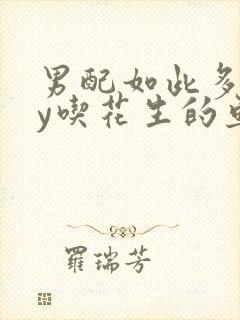 男配如此多
y喫花生的
羅瑞芳